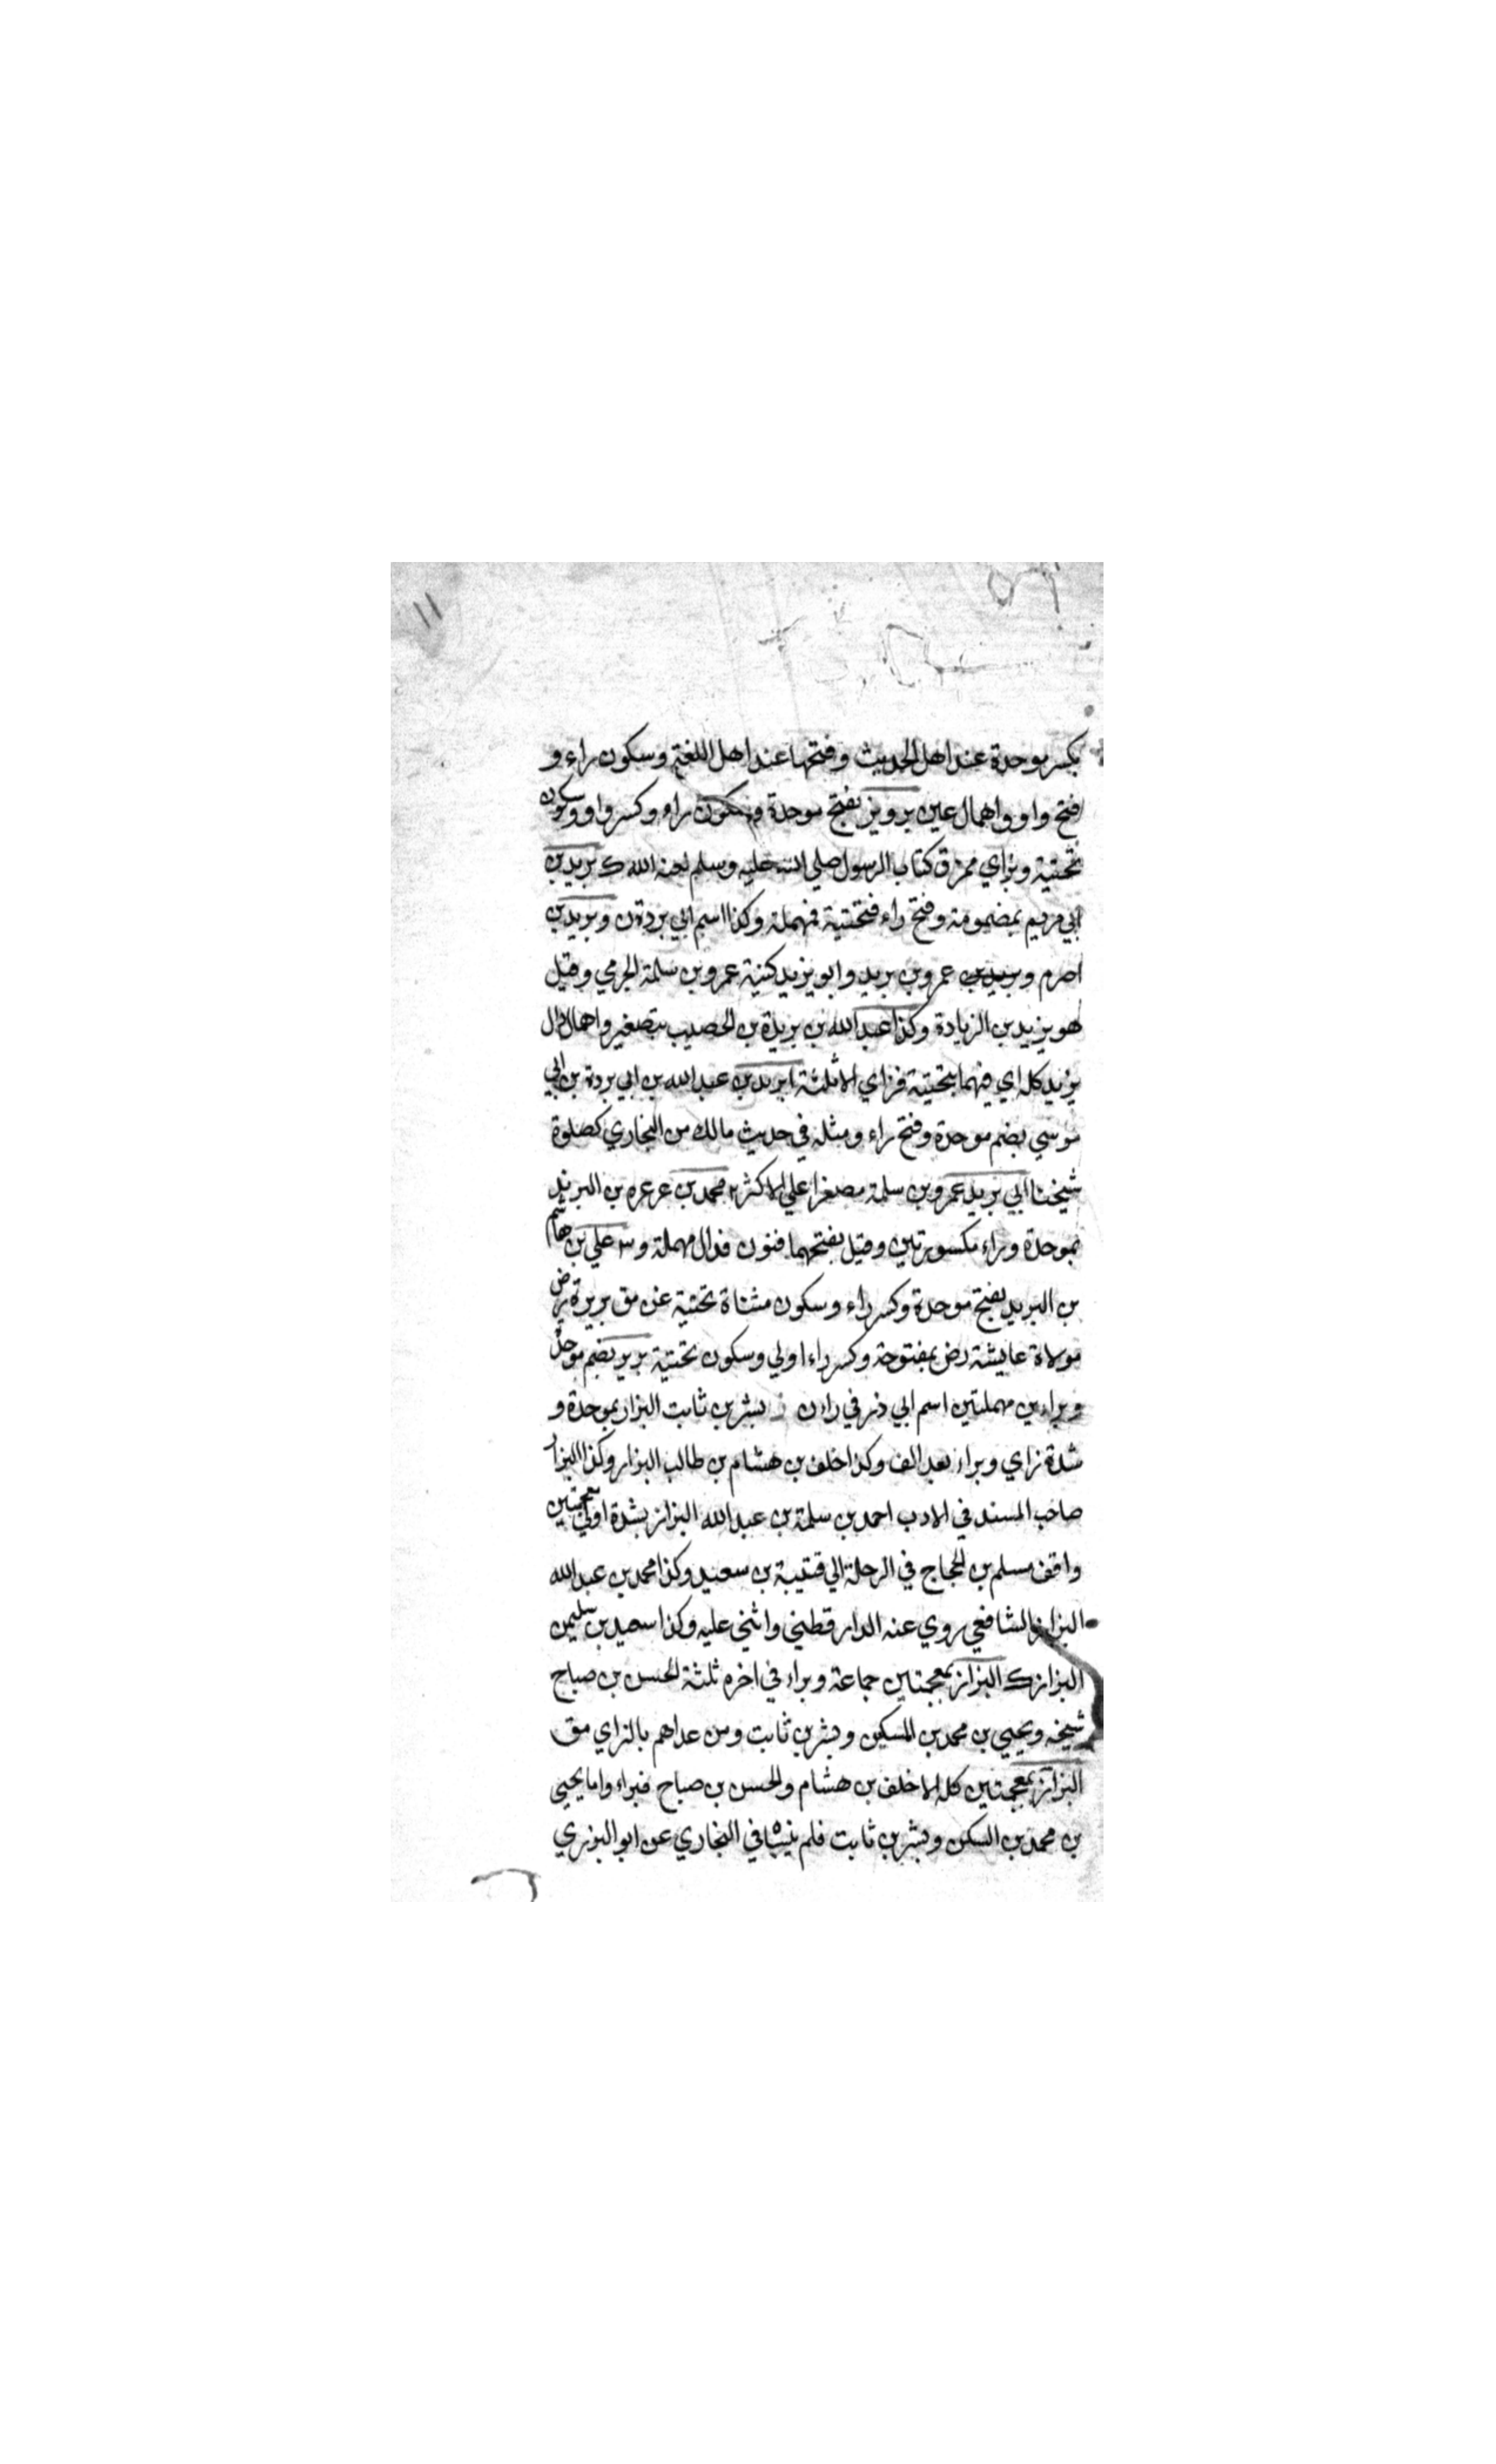 ١١
بكسر موحدة عند اهل الحديث وفتحها عند اهل اللغة وسكون راء و
فتح واو واهمال عين برويز بفتح موحدة وسكون راء وكسر واو وسكون
تحتية وبزاي ممزق كتاب الرسول صلي الله عليه وسلم لعنه الله ك بريد بن
ابي مريم بمضمومة وفتح راء فتحتية فمهملة وكذا اسم ابي بردة ن وبريد بن
اصرم وبريد بن عمرو بن بريد وابو يزيد كنية عمرو بن سلمة الجرمي وقيل
هو يزيد بن الزيادة وكذا عبد الله بن بريدة بن الحصيب بتصغير واهمال دال
يزيد كله اي فيهما بتحتية فزاي الا ثلثة ا بريد بن عبد الله بن ابي بردة بن ابي
موسي بضم موحدة وفتح راء ومثله في حديث مالك من البخاري كصلوة
شيخنا ابي بريد عمرو بن سلمة مصغرا علي الاكثر ٢ محمد بن عرعره بن البرند
بموحدة وراء مكسورتين وقيل بفتحهما فنون فدال مهملة و ٣ علي بن هاشم
بن البريد بفتح موحدة وكسر راء وسكون مثناة تحتية غن مق بريرة رض
مولاة عايشة رض بمفتوحة وكسر راء اولي وسكون تحتية برير بضم موحدة
وبراءين مهملتين اسم ابي ذر في را ن ز بشر بن ثابت البزار بموحدة و
شدة زاي وبراء بعد الف وكذا خلف بن هشام بن طالب البزار وكذا البزار
صاحب المسند في الادب احمد بن سلمة بن عبد الله البزاز بشدة اولي معجمتين
وافق مسلم بن الحجاج في الرحلة الي قتيبة بن سعيد وكذا محمد بن عبد الله
البزاز الشافعي روي عنه الدارقطني واثني عليه وكذا سعيد بن سليمن
البزاز ك البزاز بمعجمتين جماعة وبراء في اخره ثلثة الحسن بن صباح
شيخه ويحيي بن محمد بن السكن وبشر بن ثابت ومن عداهم بالزاي مق
البزاز بمعجمتين كله الا خلف بن هشام والحسن بن صباح فبراء واما يحيي
بن محمد بن السكن وبشر بن ثابت فلم ينسبا في البخاري عن ابو البزري